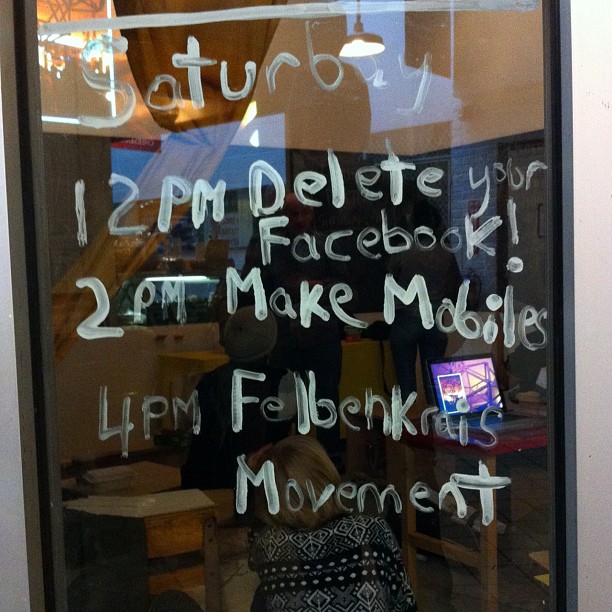 Saturday
12PM Delete your
Facebook!
2PM Make Mobiles
4PM Felbenkrais
Movement